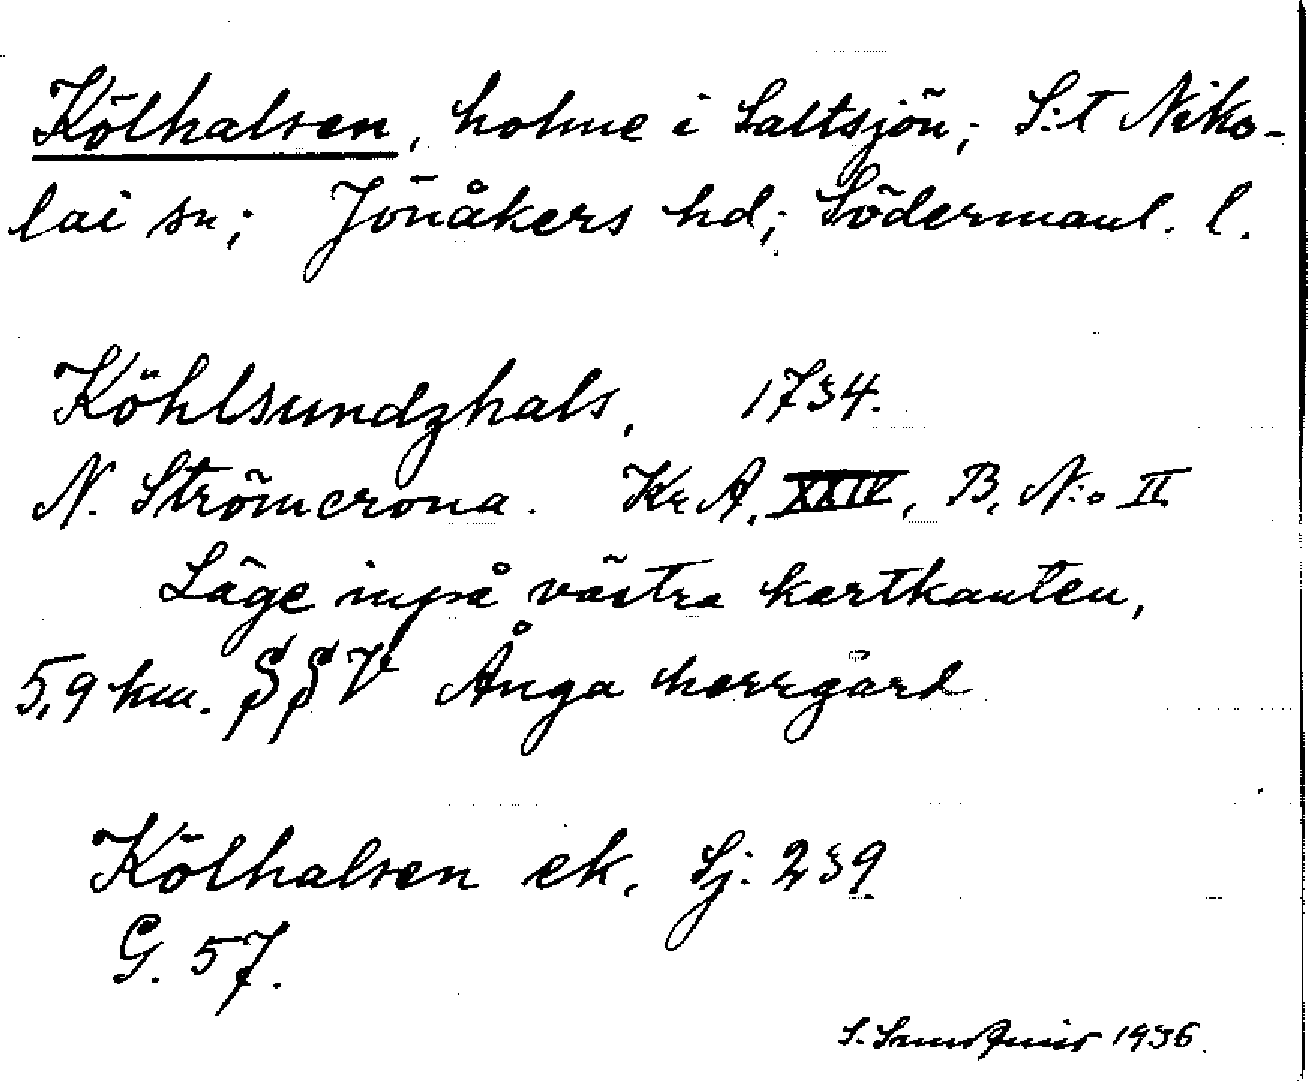 Kölhalsen, holme i Saltsjön; S:t Niko-
lai sn; Jönåkers hd; Södermanl. l.
Köhlsundzhals, 1734.
N. Strömcrona. Kr. A. XXIV, B. N:o II
Läge inpå västra kartkanten,
5,9 km. SSV Ånga herrgård
Kölhalsen ek. Sj: 239
G. 57.
S. 1936.